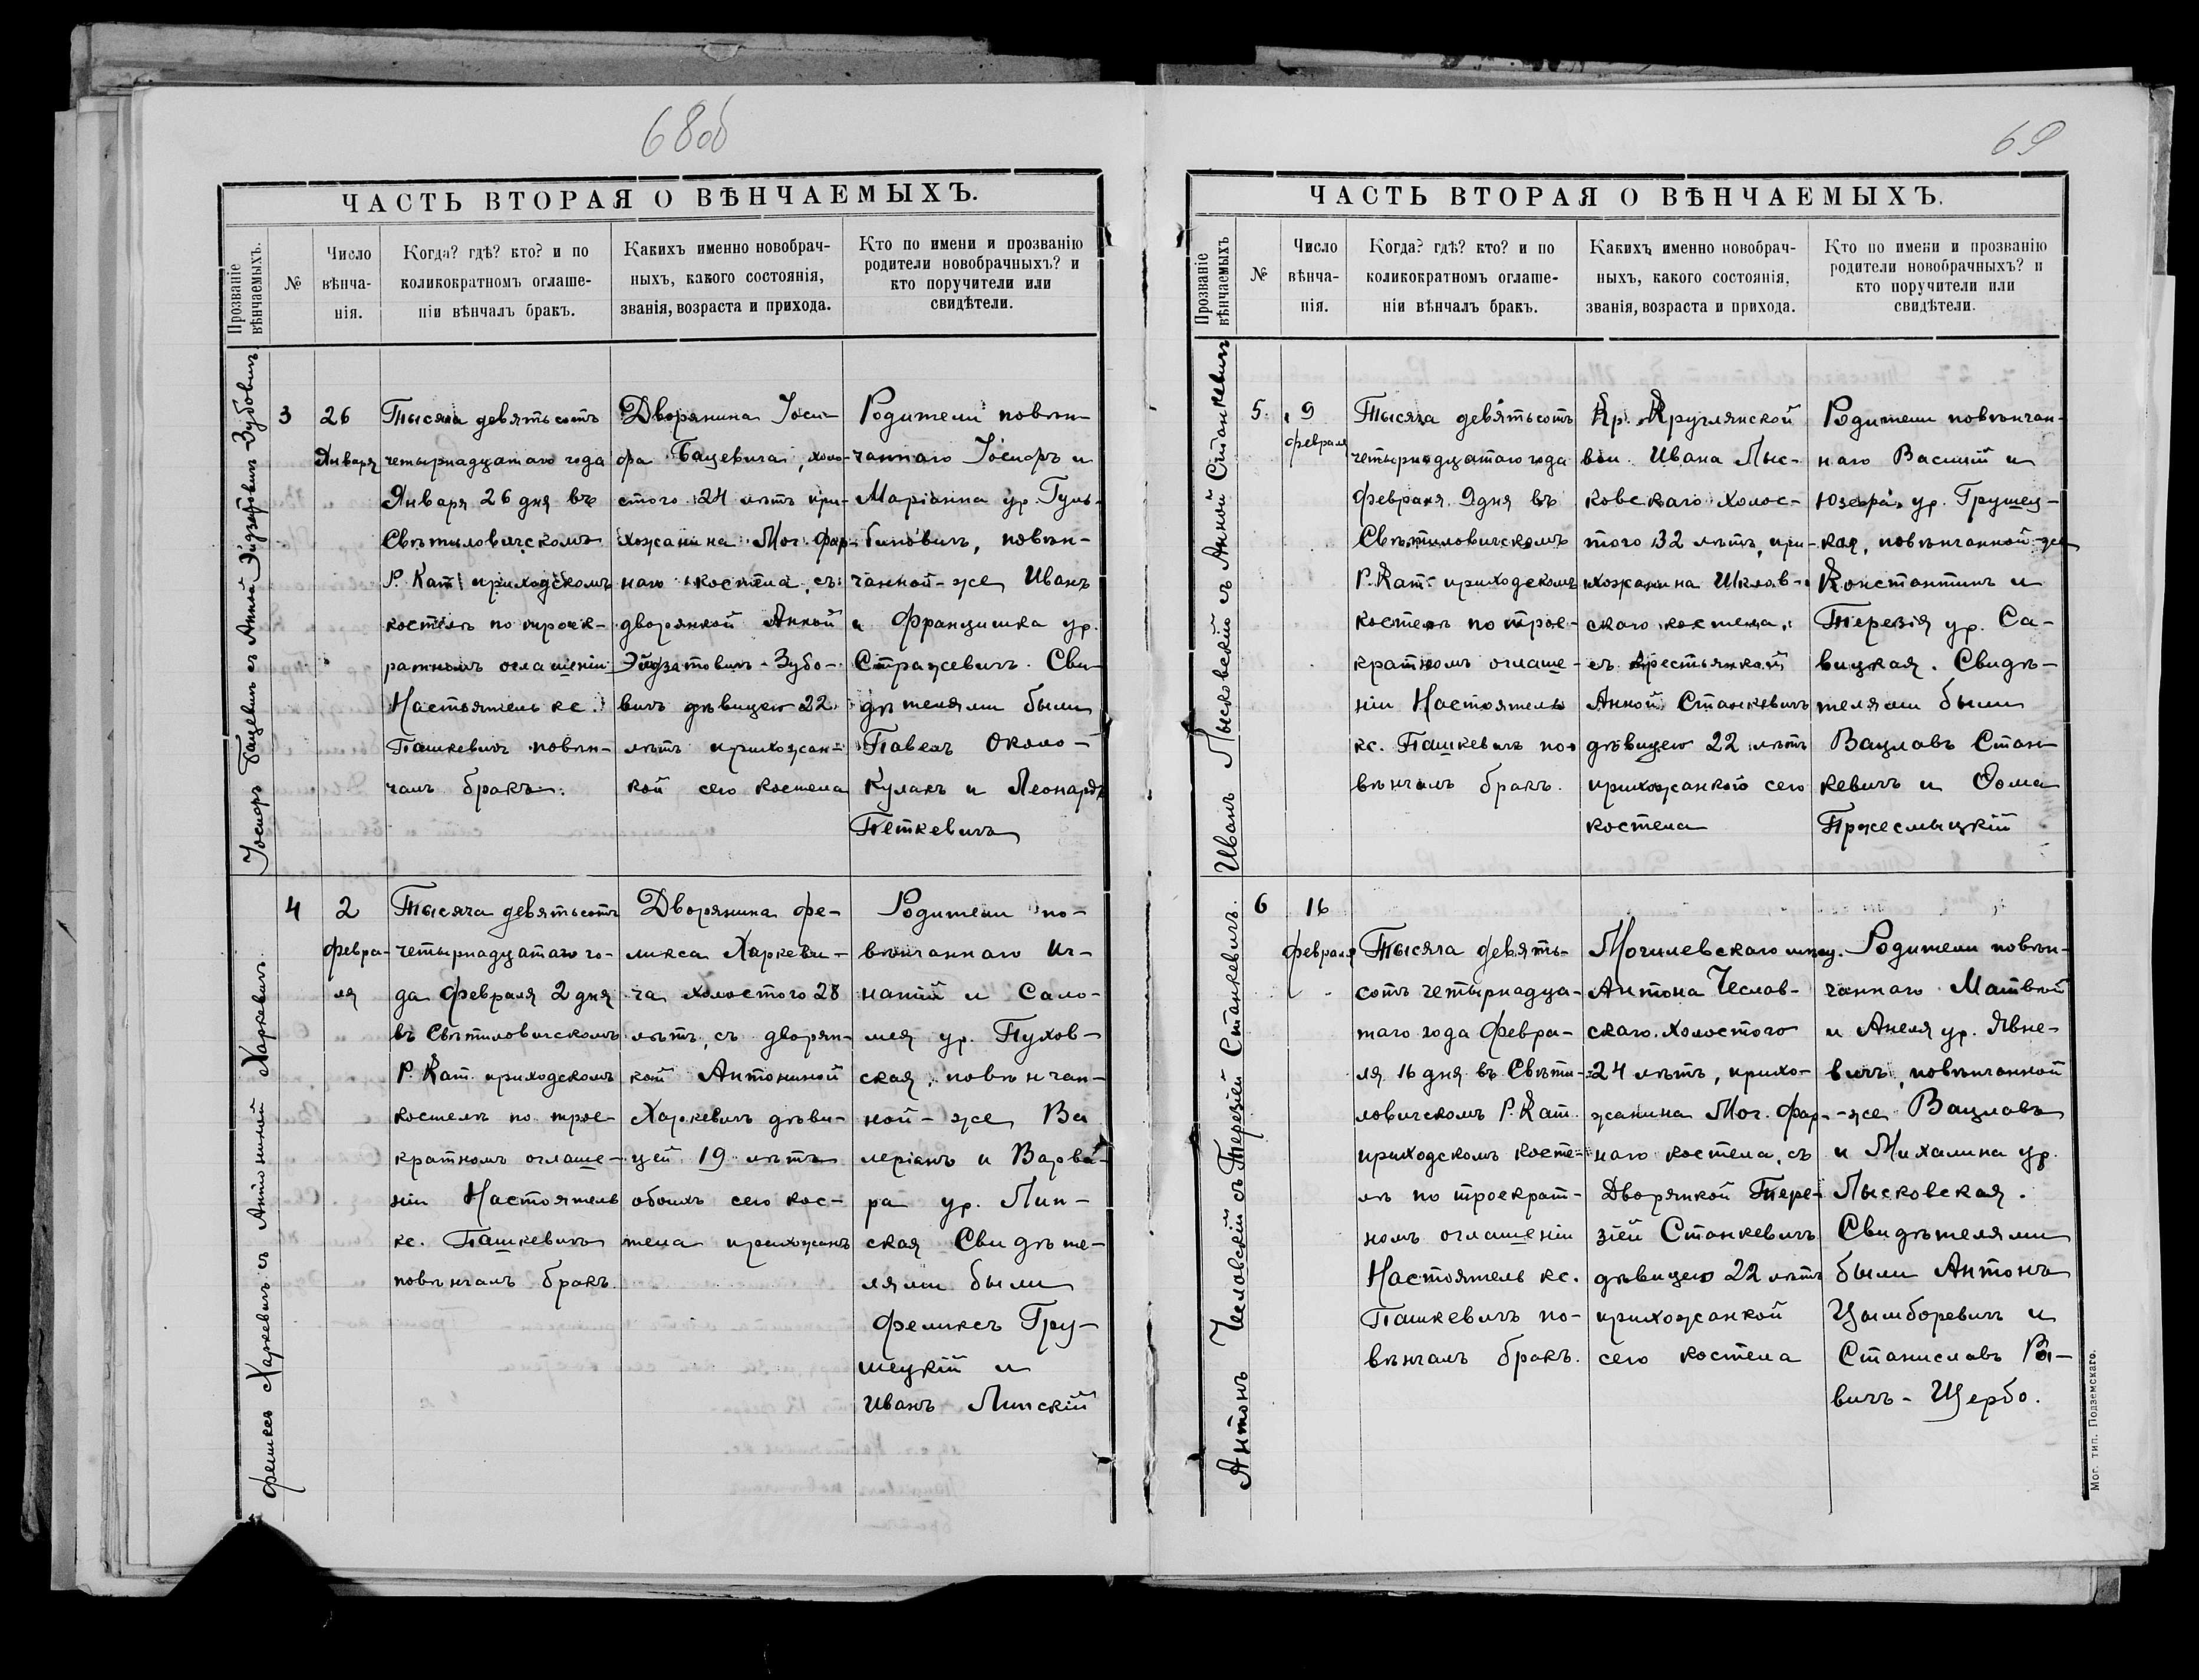 68об
ЧАСТЬ ВТОРАЯ О ВѢНЧАЕМЫХЪ.
Прозваніе
вѣнчаемыхъ.
№
Число
вѣнча-
нія.
Когда? гдѣ? кто? и по
коликократномъ оглаше-
ніи вѣнчалъ бракъ.
Какихъ именно новобрач-
ныхъ, какого состоянія,
званія, возраста и прихода.
Кто по имени и прозванію
родители новобрачныхъ? и
кто поручители или
свидѣтели.
Іосифъ Бацевичъ съ Анной Эйдзятовичъ-Зубовичъ.
3
26
Января
Тысяча девятьсотъ
четырнадцатаго года
Января 26 дня въ
Свѣтиловичскомъ
Р. Кат. приходскомъ
костелѣ по троек-
ратномъ оглашеніи
Настоятель кс.
Пашкевичъ повѣн-
чалъ бракъ.
Дворянина Іоси-
фа Бацевича, холо-
стого 24 лѣтъ при-
хожанина Мог. фар-
наго костела, съ
дворянкой Анной
Эйдзятовичъ-Зубо-
вичъ дѣвицею 22
лѣтъ прихожан-
кой сего костела
Родители повѣн-
чаннаго Іосифъ и
Маріанна ур. Гуль-
биновичъ, повѣн-
чанной-же Иванъ
и Францишка ур.
Стражевичъ. Сви-
дѣтелями были
Павелъ Около-
Кулакъ и Леонардъ
Петкевичъ
Феликсъ Харкевичъ съ Антониной Харкевичъ.
4
2
Февра-
ля
Тысяча девятьсотъ
четырнадцатаго го-
да Февраля 2 дня
въ Свѣтиловичскомъ
Р. Кат. приходскомъ
костелѣ по трое-
кратномъ оглаше-
ніи Настоятель
кс. Пашкевичъ
повѣнчалъ бракъ.
Дворянина Фе-
ликса Харкеви-
ча холостого 28
лѣтъ, съ дворян-
кой Антониной
Харкевичъ дѣви-
цей 19 лѣтъ
обоихъ сего кос-
тела прихожанъ
Родители по-
вѣнчаннаго Иг-
натій и Сало-
мея ур. Пухов-
ская, повѣнчан-
ной-же Ва
леріанъ и Варва-
ра ур. Лип-
ская Свидѣте-
лями были
Феликсъ Гру-
шецкій и
Иванъ Липскій
69
ЧАСТЬ ВТОРАЯ О ВѢНЧАЕМЫХЪ.
Прозваніе
вѣнчаемыхъ
№
Число
вѣнча-
нія.
Когда? гдѣ? кто? и по
коликократномъ оглаше-
ніи вѣнчалъ бракъ.
Какихъ именно новобрач-
ныхъ, какого состоянія,
званія, возраста и прихода.
Кто по имени и прозванію
родители новобрачныхъ? и
кто поручители или
свидѣтели.
Иванъ Лысковскій съ Анной Станкевичъ
5.
9
Февраля
Тысяча девятьсотъ
четырнадцатаго года
Февраля 9 дня въ
Свѣтиловичскомъ
Р. Кат. приходскомъ
костелѣ по трое-
кратномъ оглаше-
ніи Настоятель
кс. Пашкевичъ по-
вѣнчалъ бракъ.
Кр. Круглянской
вол. Ивана Лыс-
ковскаго холос-
того 32 лѣтъ, при-
хожанина Шклов-
скаго костела,
съ крестьянкой
Анной Станкевичъ
дѣвицею 22 лѣтъ
прихожанкой сего
костела
Родители повѣнчан-
наго Василій и
Юзефа ур. Грушец-
кая, повѣнчанной же
Константинъ и
Терезія ур. Са-
вицкая. Свидѣ-
телями были
Вацлавъ Стан-
кевичъ и Ѳома
Пржеслыцкій
Антонъ Чеславскій съ Терезіей Станкевичъ.
6
16
Февраля
Тысяча девять-
сотъ четырнадца-
таго года Февра-
ля 16 дня въ Свѣти-
ловичскомъ Р. Кат.
приходскомъ косте-
лѣ по троекрат-
номъ оглашеніи
Настоятель кс.
Пашкевичъ по-
вѣнчалъ бракъ.
Могилевскаго мѣщ.
Антона Чеслав-
скаго холостого
24 лѣтъ, прихо-
жанина Мог. фар-
наго костела, съ
Дворянкой Тере-
зіей Станкевичъ
дѣвицею 22 лѣтъ
прихожанкой
сего костела
Родители повѣн-
чаннаго Матвѣй
и Анеля ур. Явне-
вичъ, повѣнчанной
-же Вацлавъ
и Михалина ур.
Лысковская.
Свидѣтелями
были Антонъ
Цымборевичъ и
Станиславъ
вичъ-Щербо.
Мог. тип. Подземскаго.